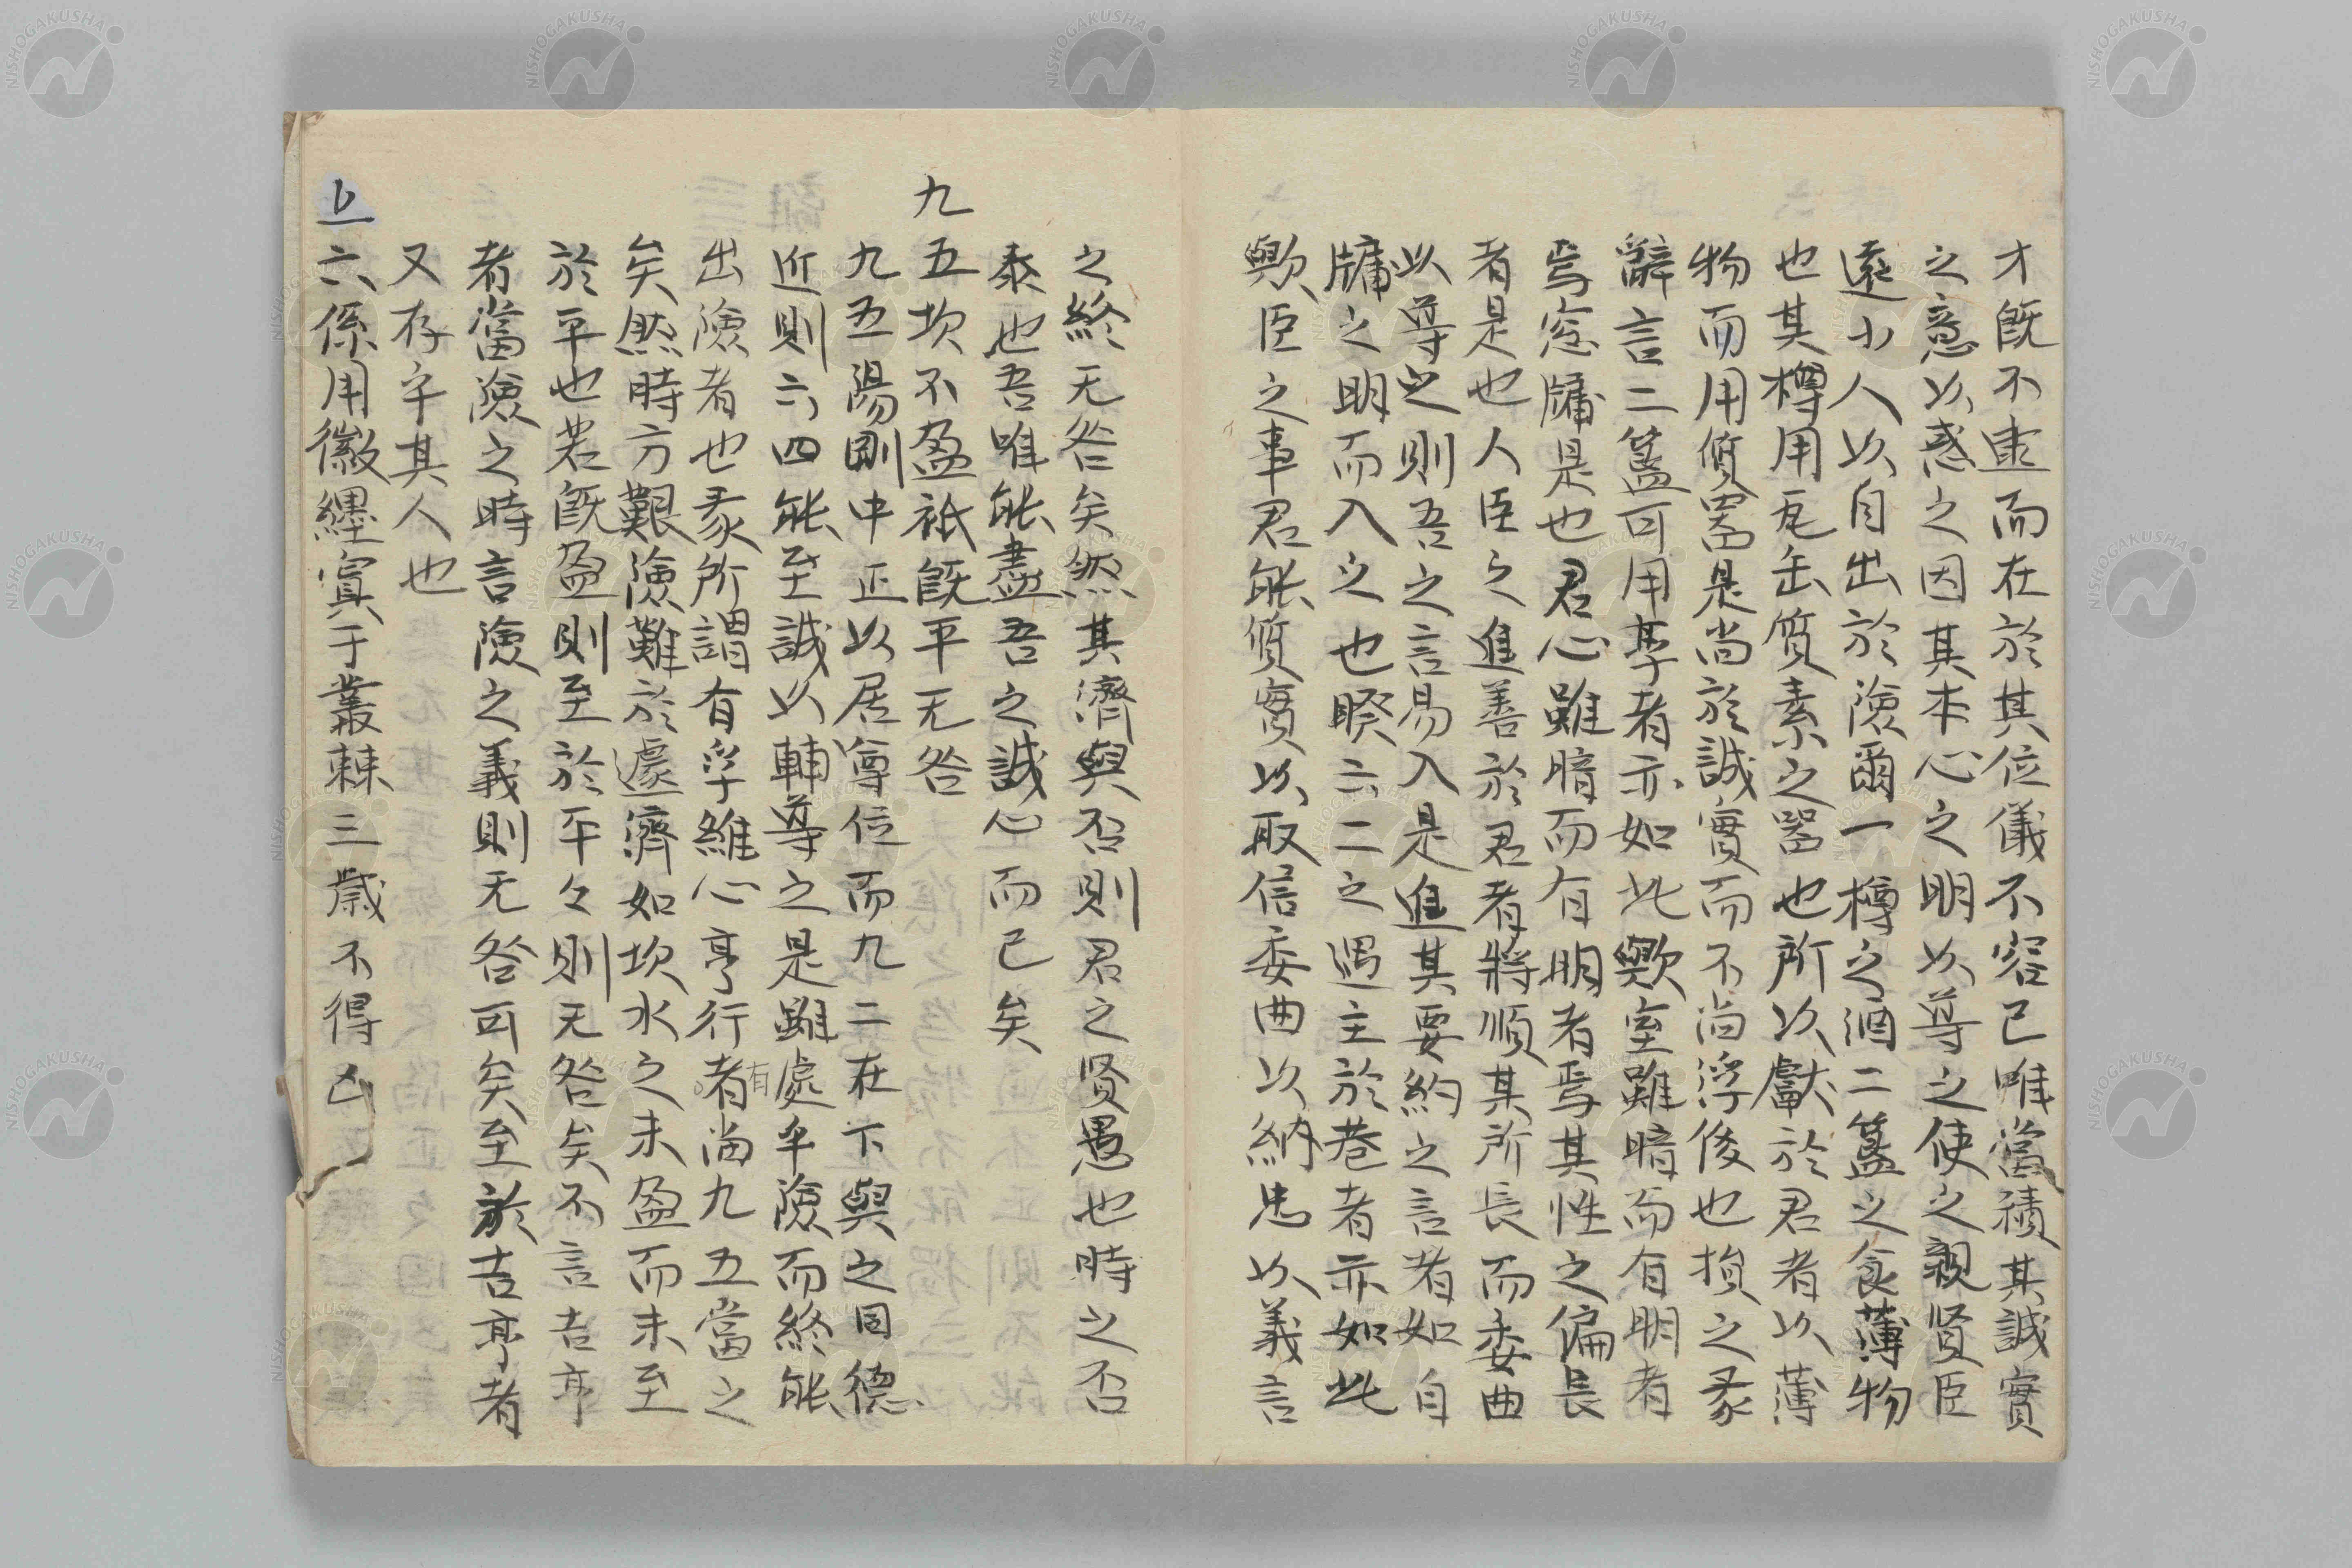 才既不逮而在於其位儀不容已唯當積其誠實
之意以惑之因其本心之明以尊之使之親賢臣
遠小人以自出於險爾一樽之酒二簋之食薄物
也其樽用瓦缶質素之器也所以獻於君者以薄
物而用質器是尚於誠實而不尚浮俊也損之彖
辭言二簋可用享者亦如此歟室雖暗而有明者
焉窓牖是也君心雖暗而有明者焉其性之偏長
者是也人臣之進善於君者將順其所長而委曲
以尊之則吾之言易入是進其要約之言者如自
牖之明而入之也睽六二之遇主於巷者亦如此
歟臣之事君能質實以取信委曲以納忠以義言
之終无咎矣然其濟與否則君之賢愚也時之否
泰也吾唯能盡吾之誠心而已矣
九五坎不盈祇既平无咎
九五陽剛中正以居尊位而九二在下與之同德
近則六四能至誠以輔尊之是雖處乎險而終能
出險者也彖所謂有孚維心亨行有者尚九五當之
矣然時方艱險難於遽濟如坎水之未盈而未至
於平也若既盈則至於平々則无咎矣不言吉亨
者當險之時言險之義則无咎可矣至於吉亨者
又存乎其人也
上六係用徽纆寘于叢棘三歳不得凶
NISHOGAKUSHA